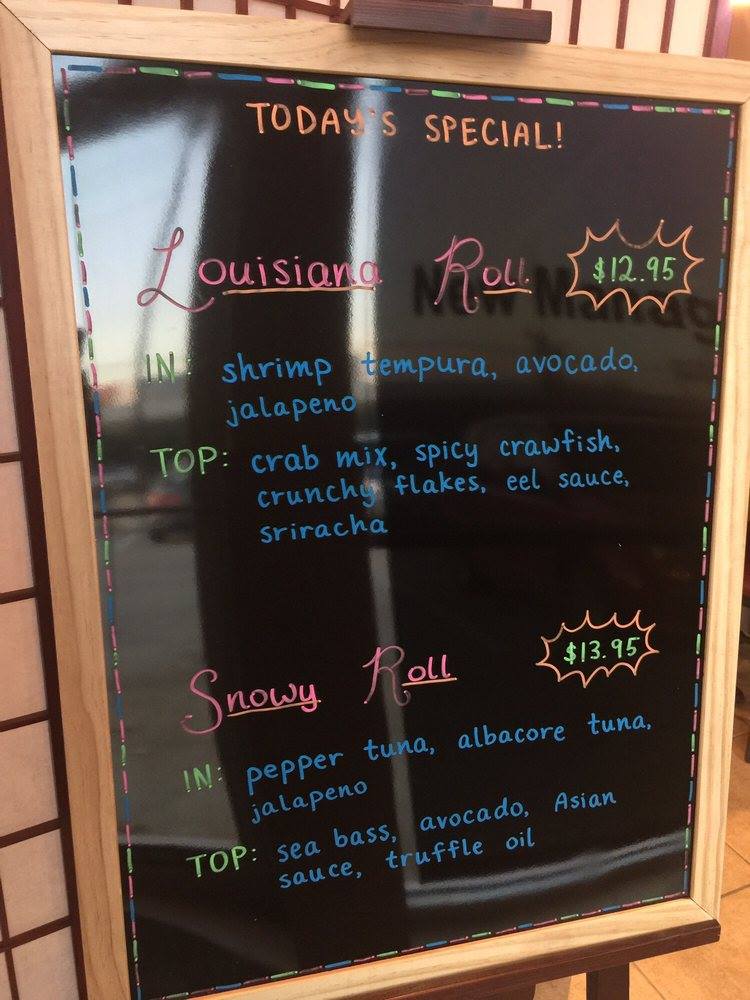 TODAY'S SPECIAL!
Louisiana Roll $12.95
IN: shrimp tempura, avocado,
jalapeno
TOP: crab mix, spicy crawfish,
crunchy flakes, eel sauce,
sriracha
Snowy Roll $13.95
IN: pepper tuna, albacore tuna,
jalapeno
TOP: sea bass, avocado, Asian
sauce, truffle oil
New